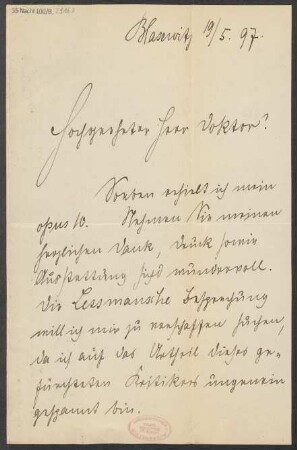 Blasewitz 19/5. 97.
Hochgeehrter Herr Doktor!
Soeben erhielt ich mein
opus 10. Nehmen Sie meinen
herzlichen Dank, Druck sowie
Ausstattung sind wundervoll.
Die Lessmansche Besprechung
will ich mir zu verschaffen suchen,
da ich auf das Urtheil dieses ge-
fürchteten Kritikers ungemein
gespannt bin.